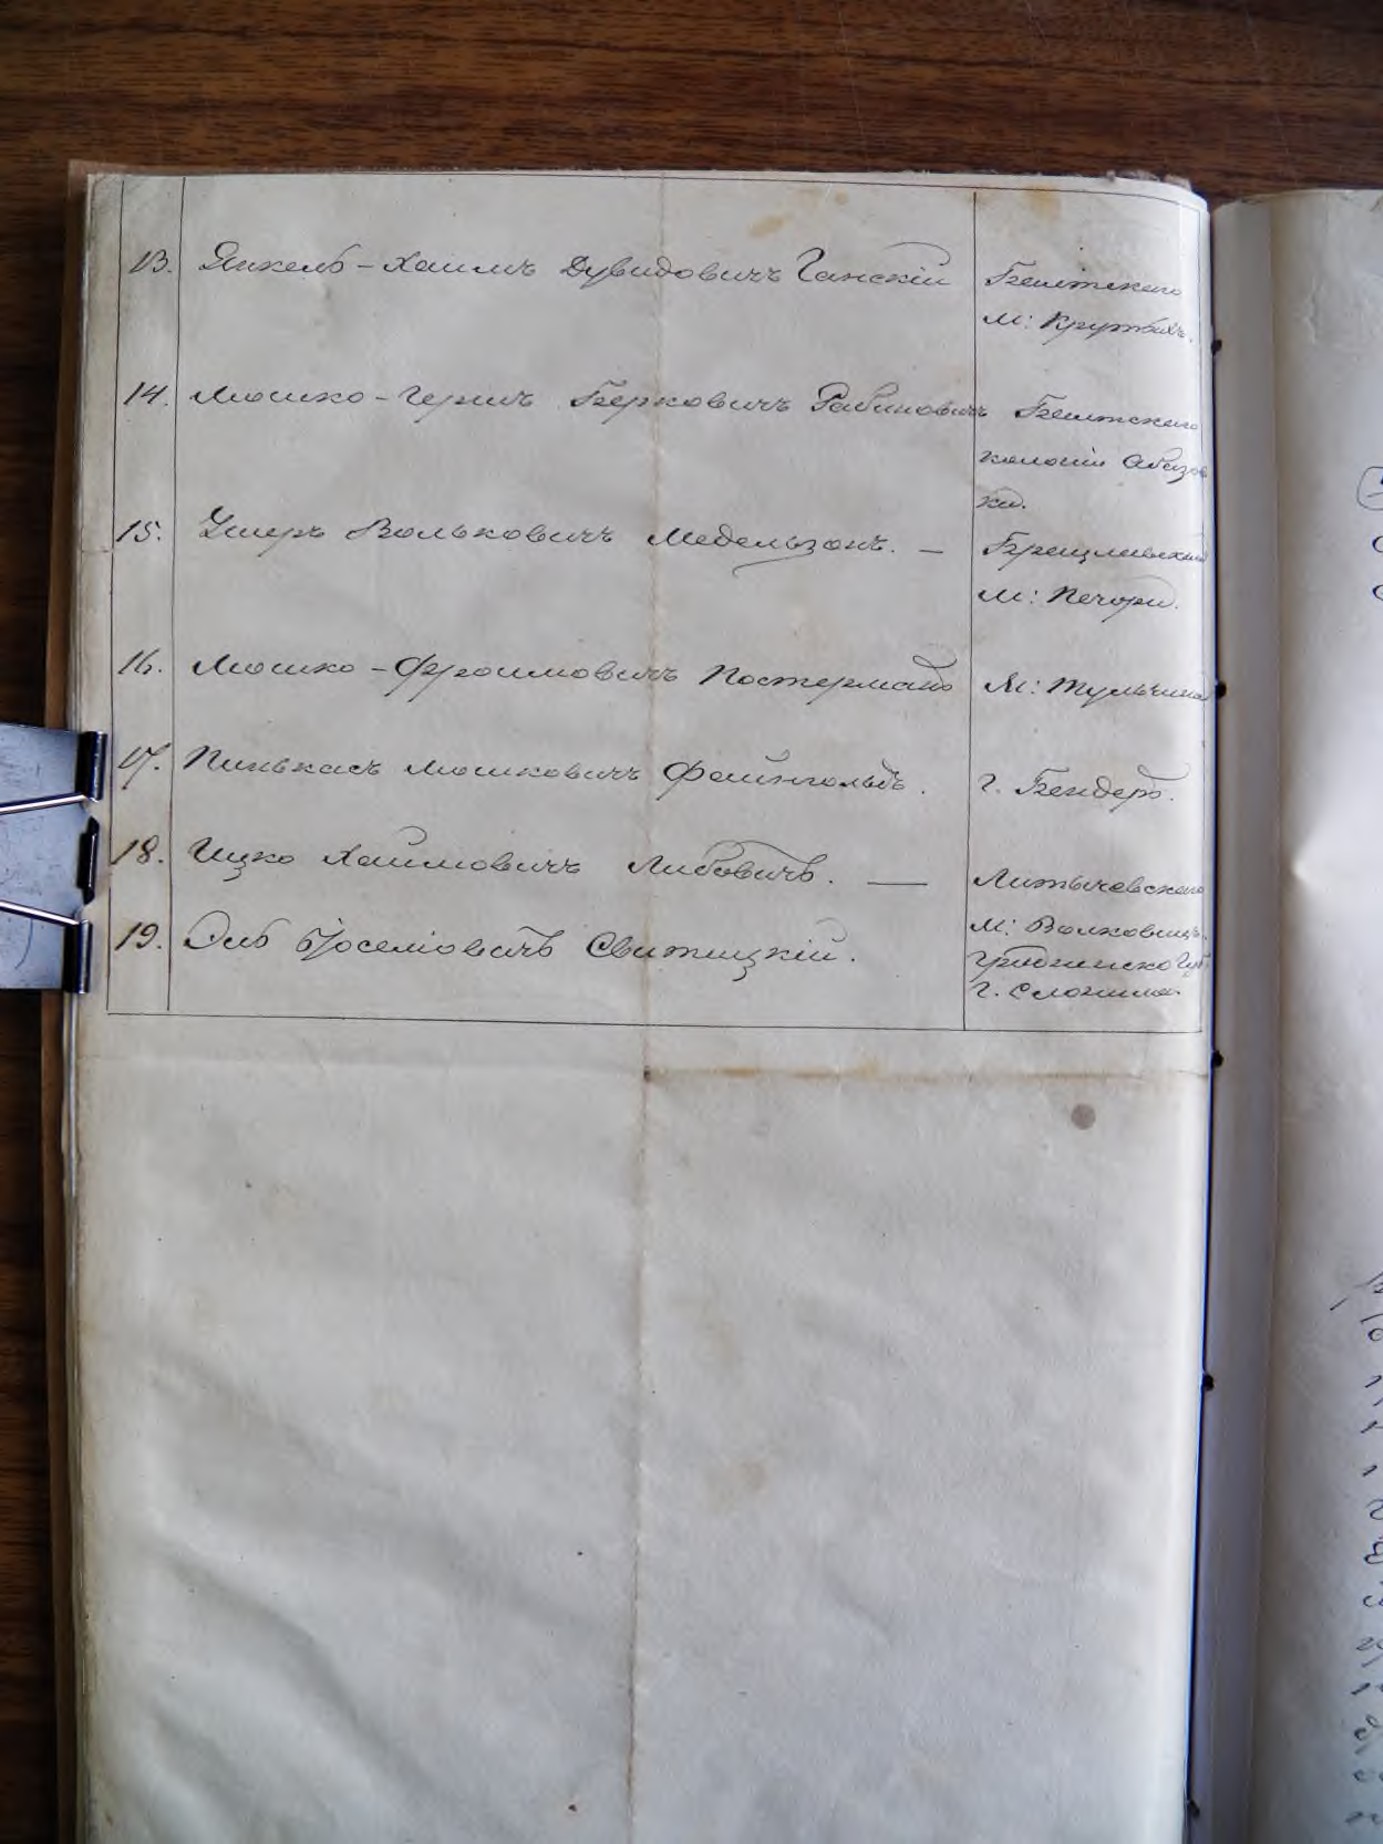 13. Янкель-Хаимъ Дувидовичъ Ганскій Балтскаго
м: Крутыхъ.
14. Мошко-Гершъ Берковичъ Рабиновичъ Балтскаго
колоніи Абазов
ки.
15. Ушеръ Вольковичъ Медельзонъ. — Брацлавскаго
м: Печоры.
16. Мошко-Фроимовичъ Постерманъ м: Тульчина
17. Пинькасъ Мошковичъ Фаингольдъ. г. Бендеръ.
18. Ицко Хаимовичъ Либовичъ. — Литычевскаго
м: Волковицъ.
19. Эль Іоселіовичъ Свитицкій. Гродненско Губ.
г. Слонима.